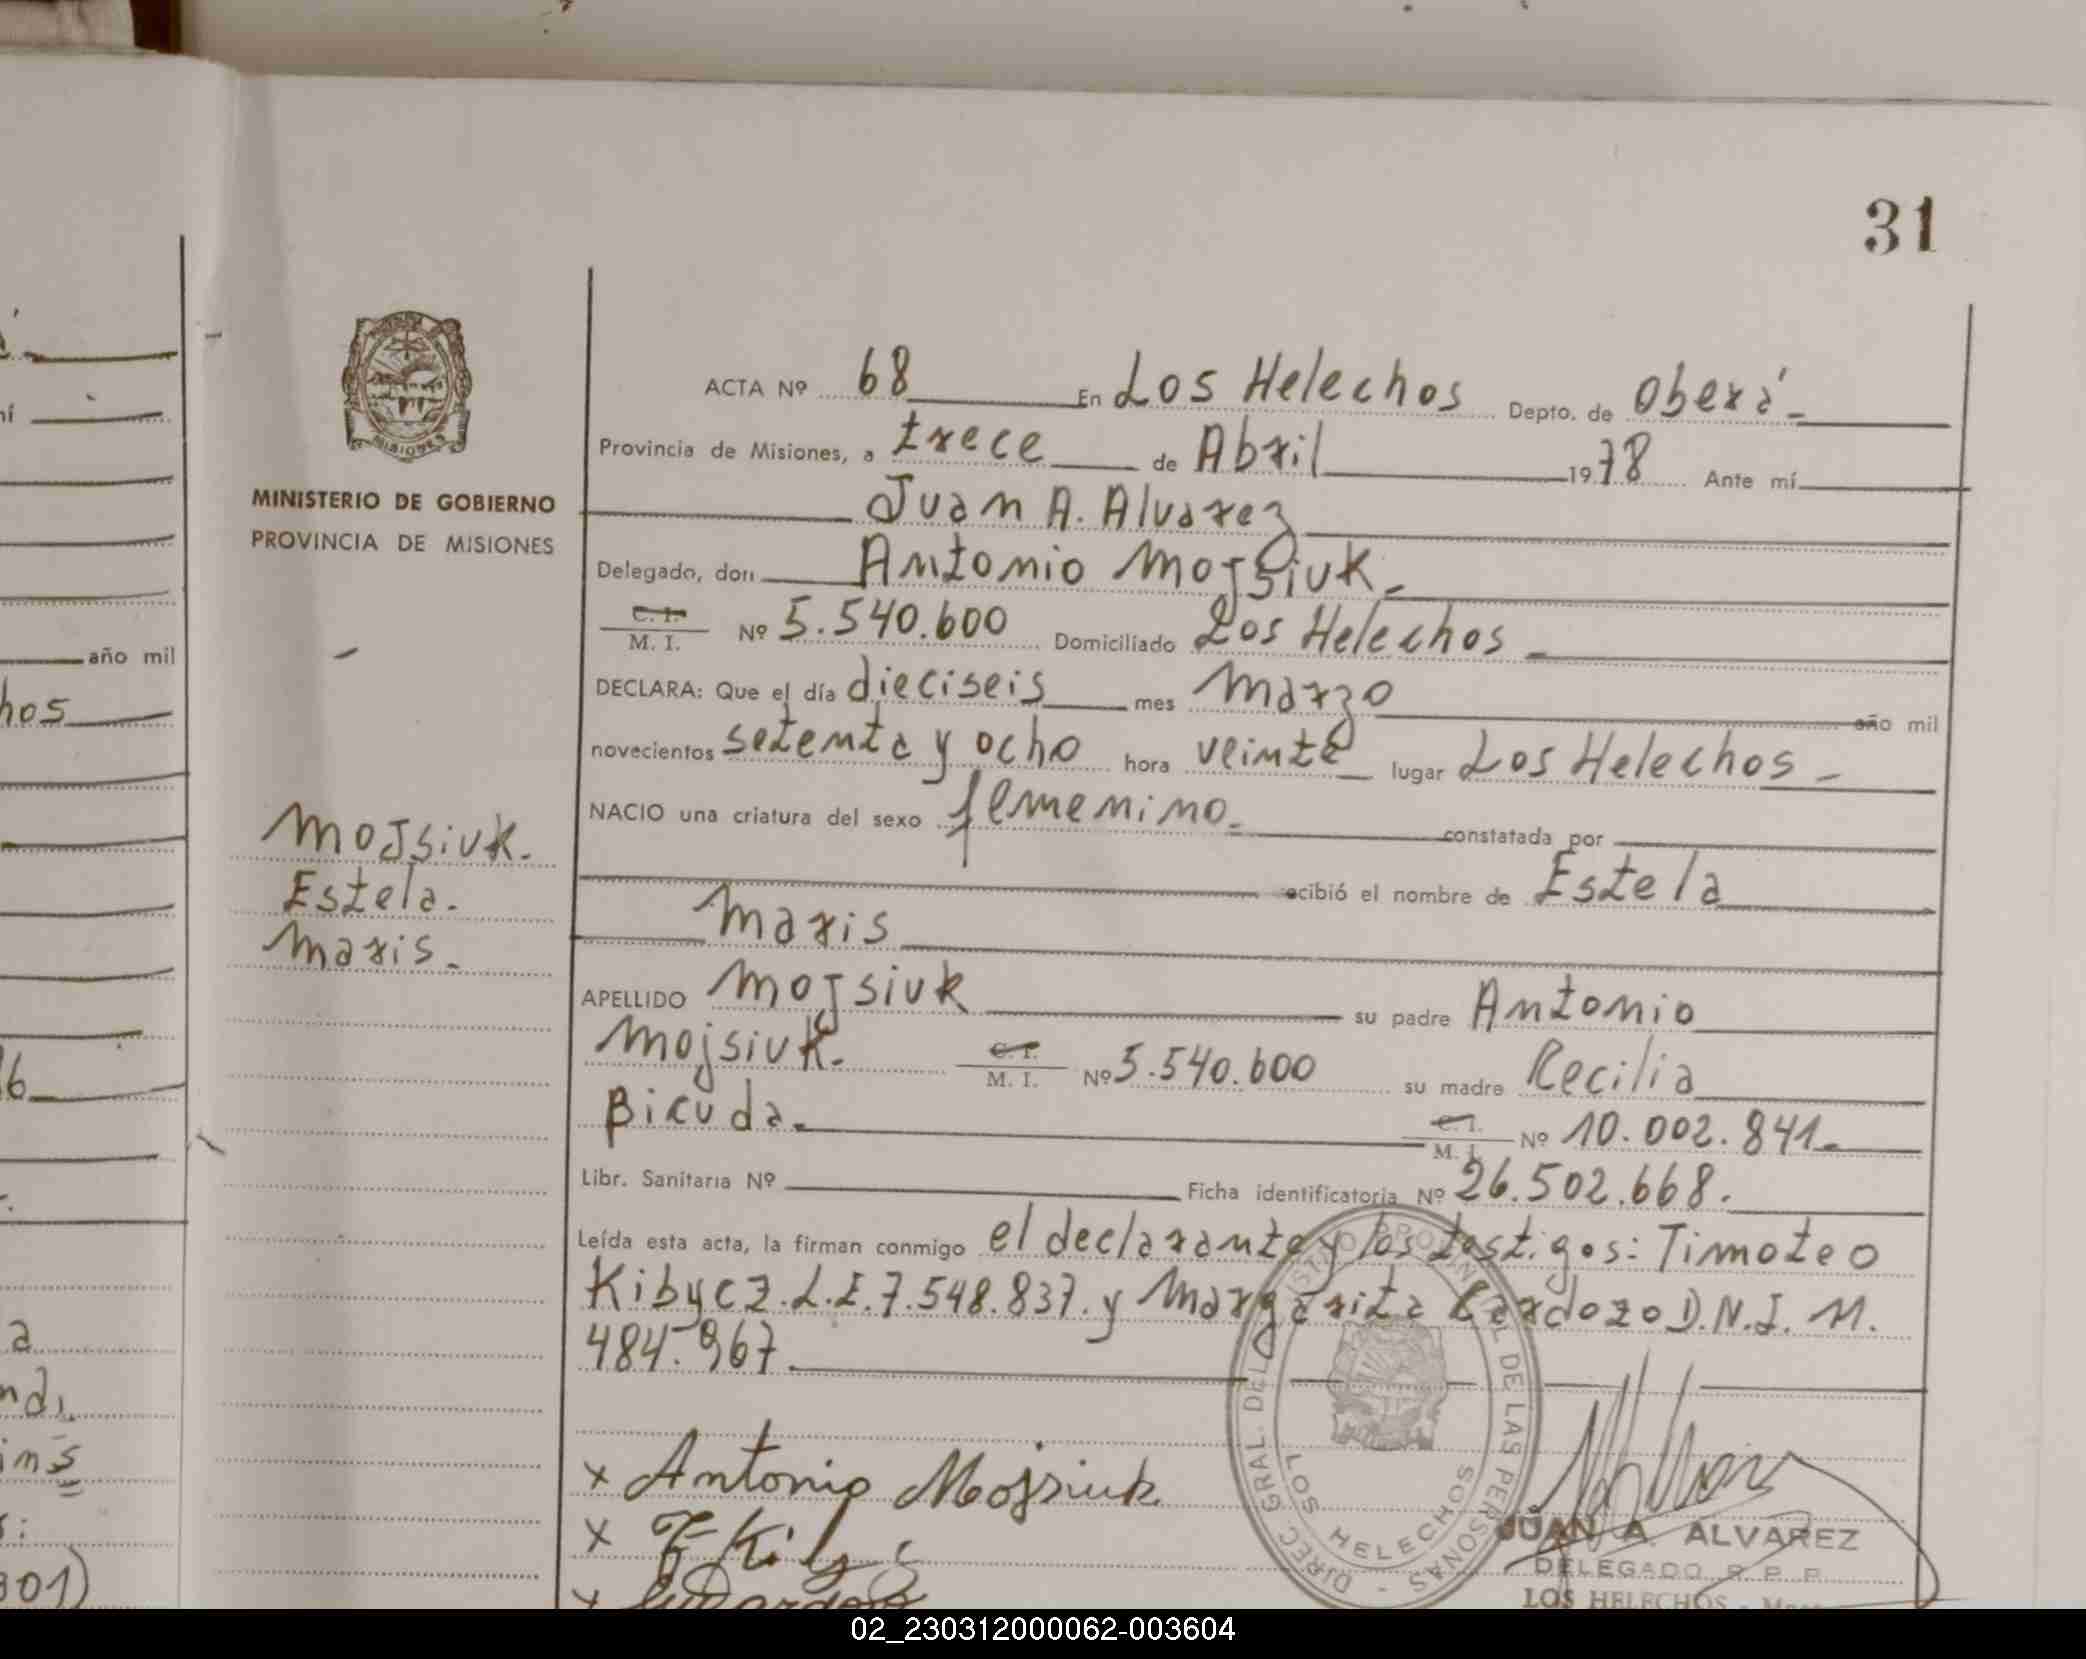 31
ACTA Nº 68 En Los Helechos Depto. de Oberá
Provincia de Misiones, a trece de Abril 1978 Ante mí
Juan A. Alvarez
MINISTERIO DE GOBIERNO
PROVINCIA DE MISIONES
MISIONES
Delegado, don Antonio Mojsiuk.
C. I.
M. I. Nº 5.540.600 Domiciliado Los Helechos
DECLARA: Que el día dieciseis mes marzo año mil
novecientos setenta y ocho hora veinte lugar Los Helechos
NACIO una criatura del sexo femenino. constatada por
ecibió el nombre de Estela
Maris
Mojsiuk.
Estela.
Maris.
APELLIDO Mojsiuk su padre Antonio
Mojsiuk. C. I. M. I. Nº 5.540.600 su madre Cecilia
Bicuda. C. I. M. I. Nº 10.002.841
Libr. Sanitaria Nº Ficha identificatoria Nº 26.502.668.
Leída esta acta, la firman conmigo el declarante y los testigos: Timoteo
Kibycz. L.E. 7.548.837. y Margarita Cardozo D.N.I. 11.
484.967
Antonio Mojsiuk
DIREC. GRAL. DEL PROVINCIAL DE LAS PERSONAS
LOS HELECHOS
JUAN A. ALVAREZ
DELEGADO R. P. P.
LOS HELECHOS
año mil
hos
301)
02_230312000062-003604